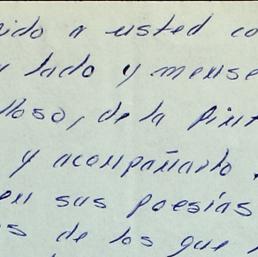 ido a usted co
lado y mense
lloso, de la pint
y acompañarlo
en sus poesías
os de los que